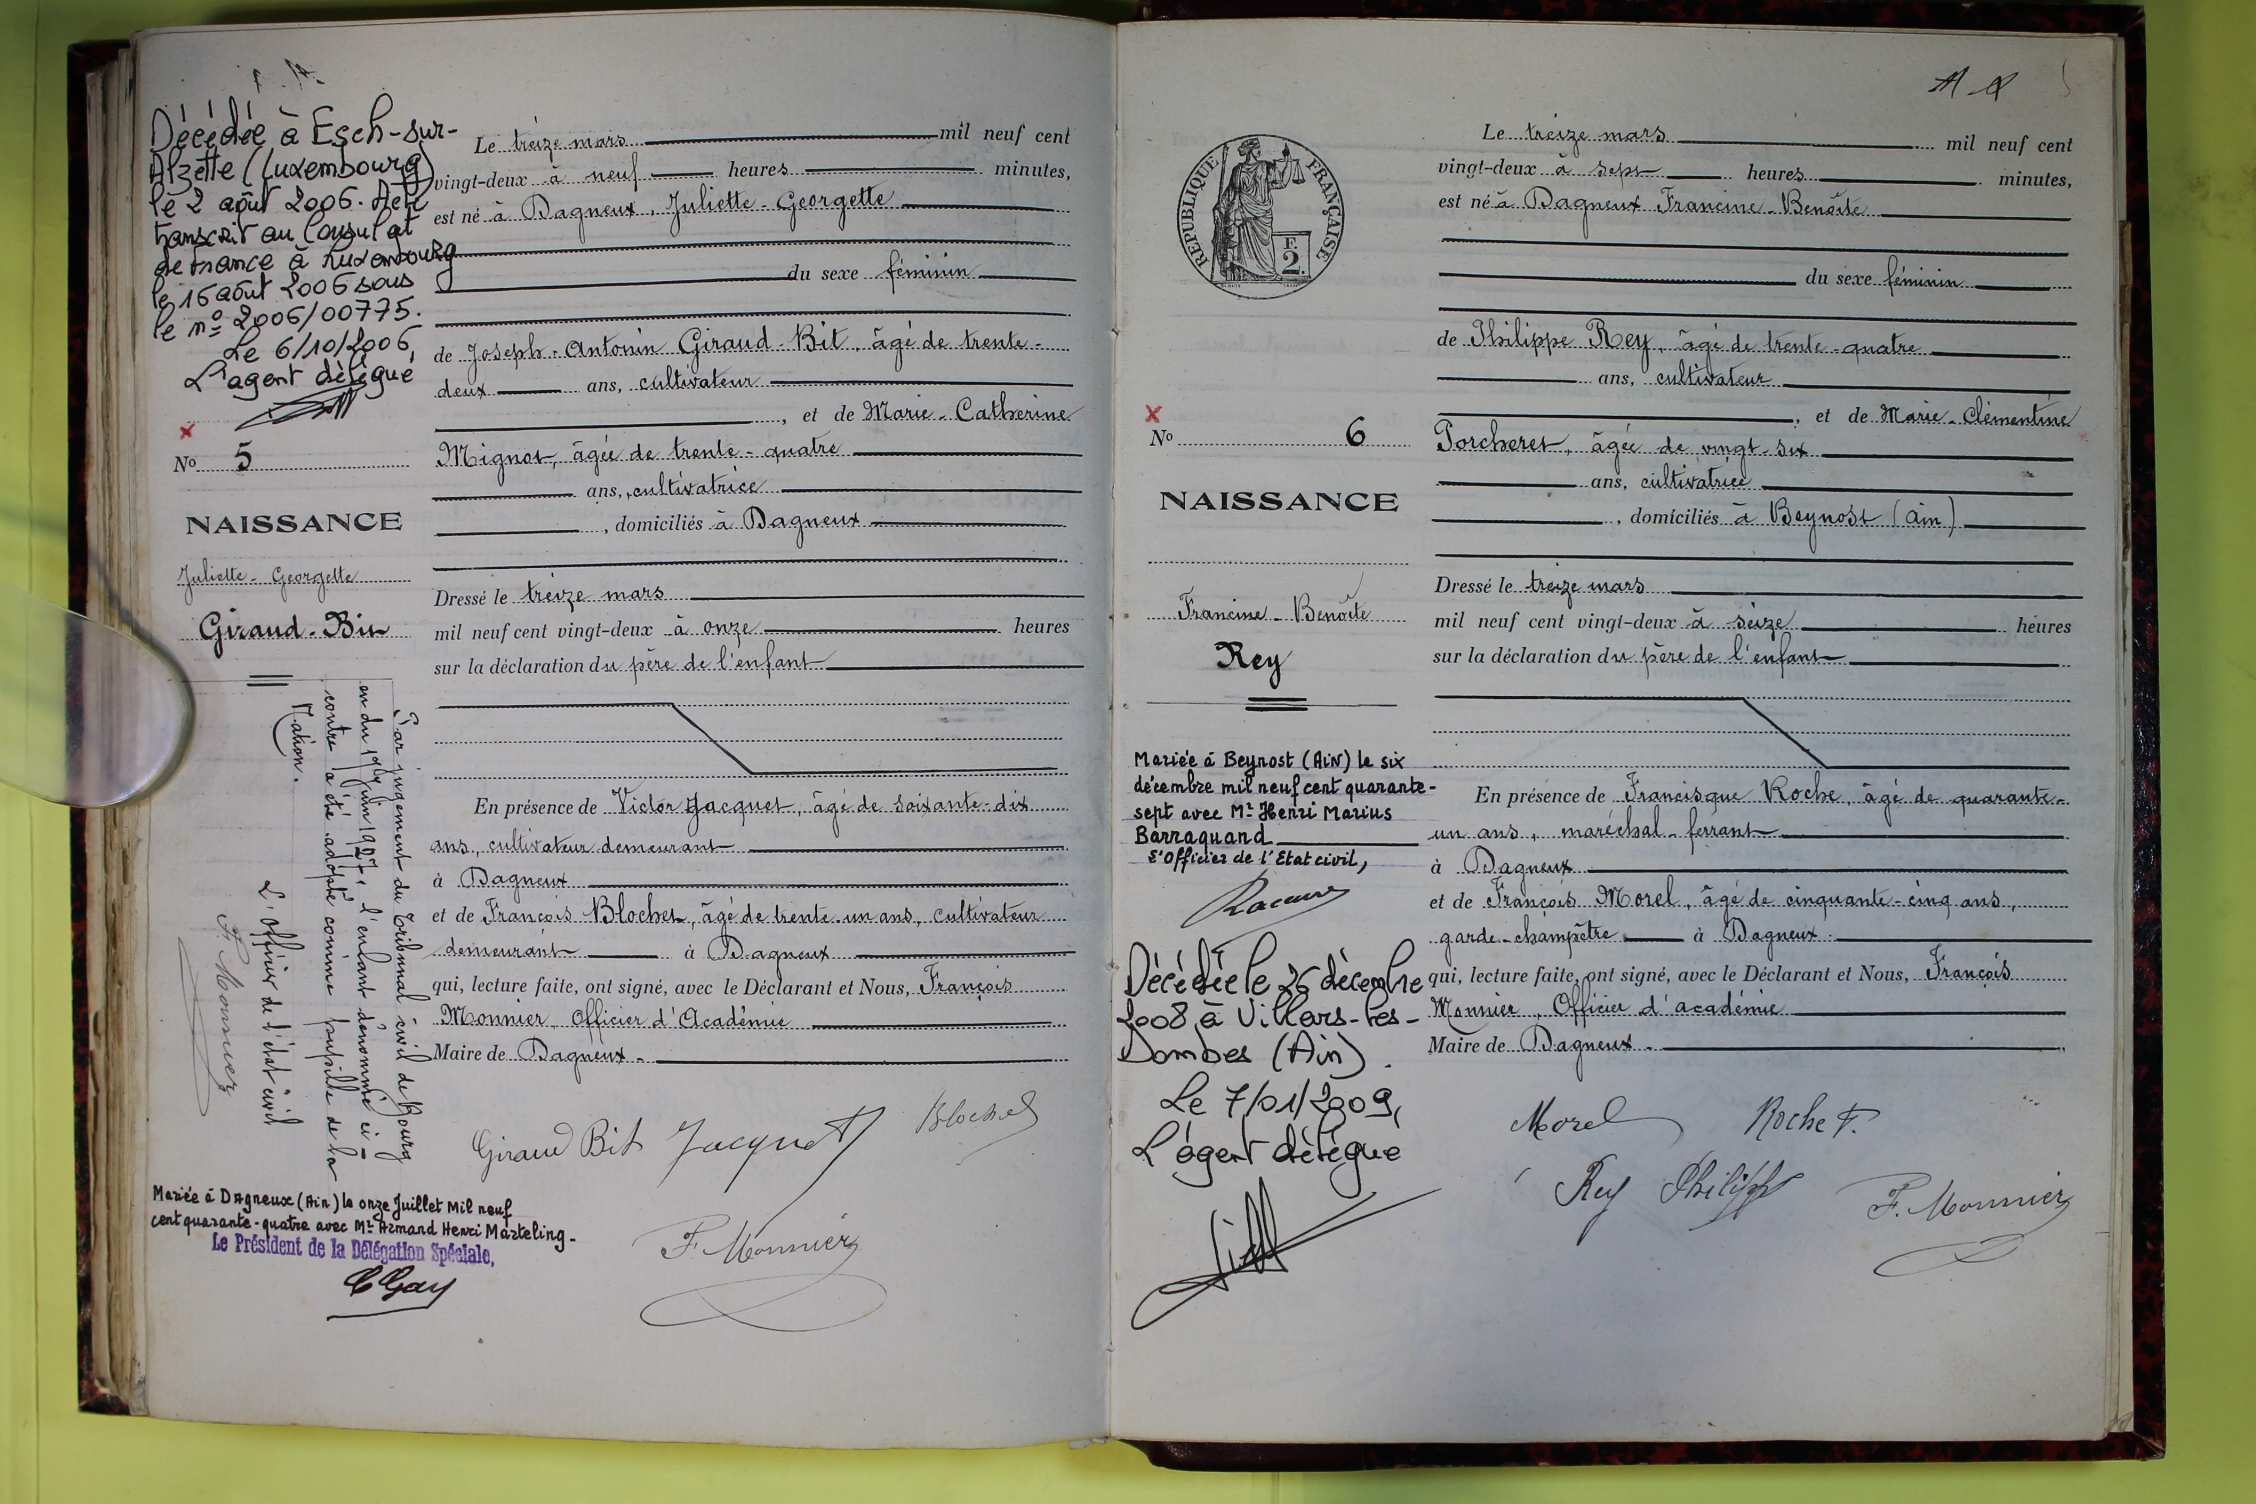 Décédée à Esch-sur-
Alzette (Luxembourg)
le 2 août 2006. Acte
transcrit au Consulat
de France à Luxembourg
le 16 août 2006 sous
le nº 2006/00775.
Le 6/10/2006
L'agent délégué
No 5
NAISSANCE
Juliette - Georgette
Giraud - Bit
Par jugement du Tribunal civil de Bourg
en du 1927, l'enfant dénommé ci-
contre a été adopté comme pupille de la
Nation.
L'Officier de l'état civil
F. Monnier
Mariée à Dagneux (Ain) le onze Juillet Mil neuf
cent quarante-quatre avec Mr Armand Henri Marteling -
Le Président de la Délégation Spéciale,
C Gay
Le treize mars mil neuf cent
vingt-deux à neuf heures minutes,
est né à Dagneux, Juliette - Georgette
du sexe féminin
de Joseph - Antonin Giraud - Bit, âgé de trente -
deux ans, cultivateur
, et de Marie - Catherine
Mignot, âgée de trente - quatre
ans, cultivatrice
, domiciliés à Dagneux
Dressé le treize mars
mil neuf cent vingt-deux à onze heures
sur la déclaration du père de l'enfant
En présence de Victor Jacquet, âgé de soixante-dix
ans, cultivateur demeurant
à Dagneux
et de François Blochet, âgé de trente-un ans, cultivateur
demeurant à Dagneux
qui, lecture faite, ont signé, avec le Déclarant et Nous, François
Monnier, Officier d'Académie
Maire de Dagneux -
Giraud Bit Jacquet Blochet
F. Monnier
RÉPUBLIQUE FRANÇAISE
F.
2.
No 6
NAISSANCE
Francine - Benoîte
Rey
Mariée à Beynost (Ain) le six
décembre mil neuf cent quarante-
sept avec Mr Henri Marius
Barraquand
L'Officier de l'Etat civil,
Décédée le 26 décembre
2008 à Villars-les-
Dombes (Ain).
Le 7/01/2009,
L'agent délégué
Le treize mars mil neuf cent
vingt-deux à sept heures minutes,
est né à Dagneux Francine - Benoîte
du sexe féminin
de Philippe Rey, âgé de trente-quatre
ans, cultivateur
, et de Marie - Clémentine
Porcheret, âgée de vingt-six
ans, cultivatrice
, domiciliés à Beynost (Ain)
Dressé le treize mars
mil neuf cent vingt-deux à seize heures
sur la déclaration du père de l'enfant
En présence de Francisque Roche, âgé de quarante-
un ans, maréchal-ferrant
à Dagneux
et de François Morel, âgé de cinquante-cinq ans,
garde-champêtre à Dagneux.
qui, lecture faite, ont signé, avec le Déclarant et Nous, François
Monnier, Officier d'académie
Maire de Dagneux -
Morel Roche F.
Rey Philippe F. Monnier